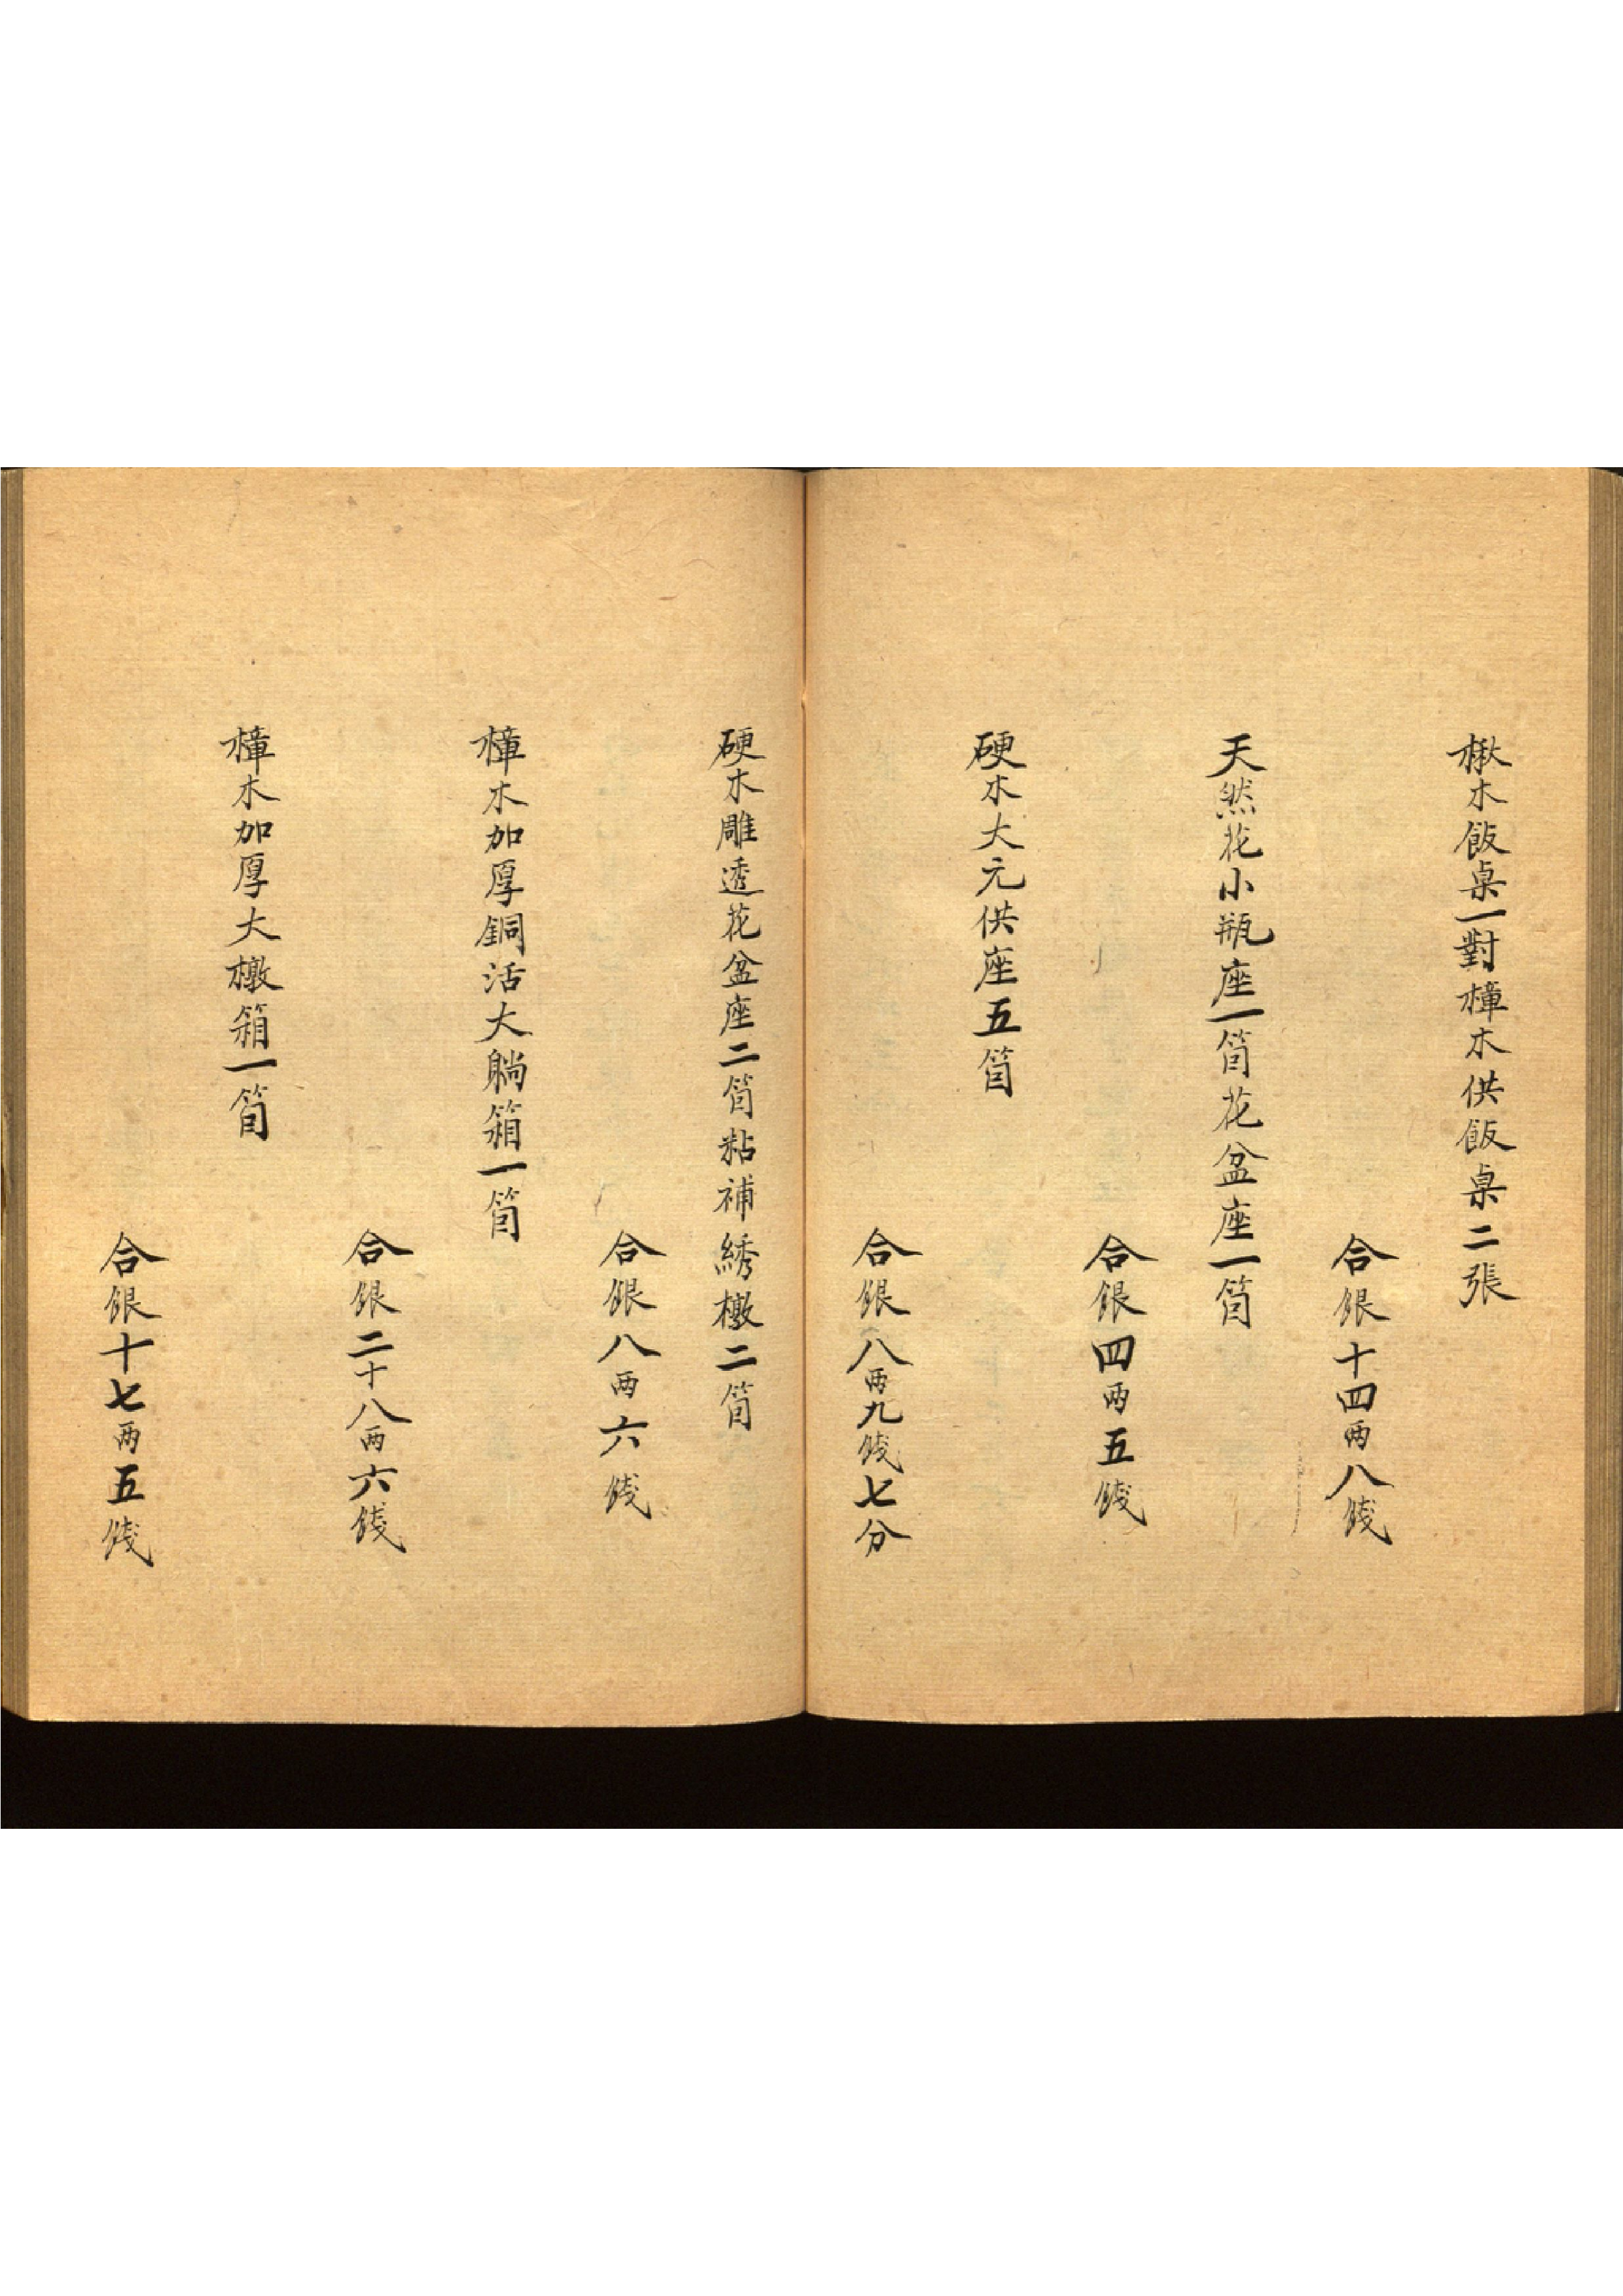 楸木飯桌一對樟木供飯桌二張
合銀十四两八錢
天然花小瓶座一箇花盆座一箇
合銀四两五錢
硬木大元供座五箇
合銀八两九錢七分
硬木雕透花盆座二箇粘補綉檄二箇
合銀八两六錢
樟木加厚銅活大躺箱一箇
合銀二十八两六錢
樟木加厚大檄箱一箇
合銀十七两五錢